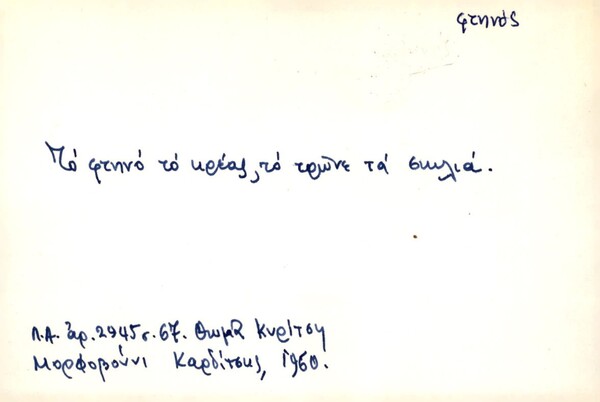 φτηνός
Τό φτηνό τό κρέας, τό τρῶνε τά σκυλιά.
Λ.Α. ἀρ. 2945 σ. 67. Θωμᾶ Κυρίτση
Μορφοβούνι Καρδίτσης, 1960.